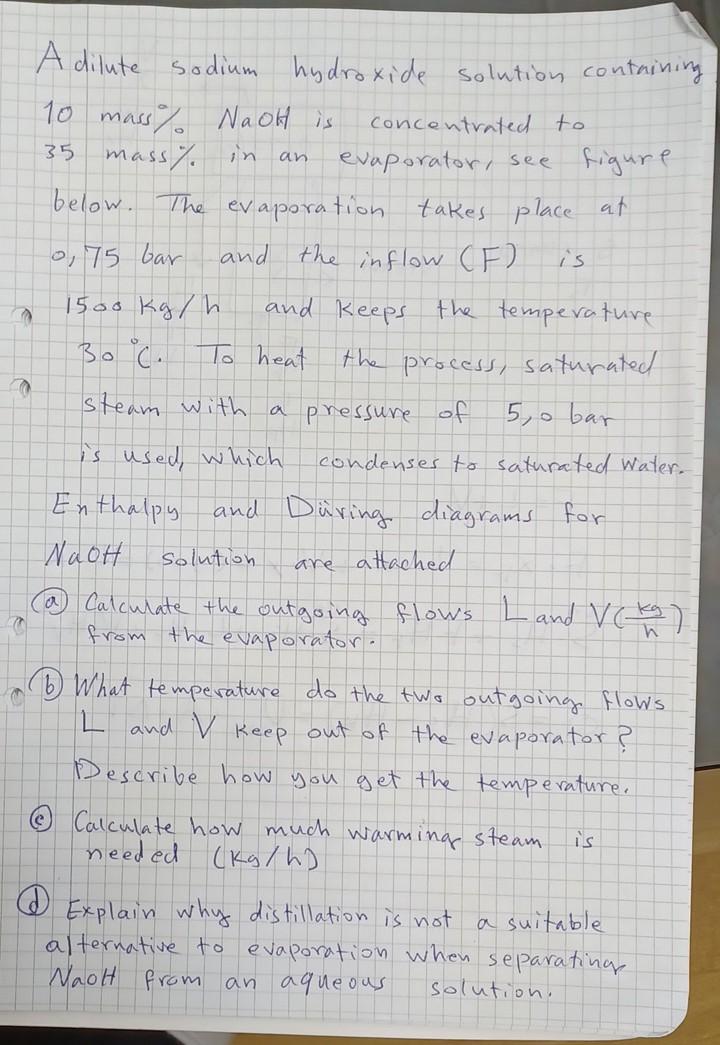 A dilute sodium hydroxide solution containing
10 mass% NaOH is concentrated to
35 mass% in an evaporator, see figure
below. The evaporation takes place at
0,75 bar and the inflow (F) is
1500 kg/h and keeps the temperature
30 °C. To heat the process, saturated
steam with a pressure of 5,0 bar
is used, which condenses to saturated water.
Enthalpy and Düring diagrams for
NaOH solution are attached
(a) Calculate the outgoing flows L and V (kg/h)
from the evaporator.
(b) What temperature do the two outgoing flows
L and V keep out of the evaporator?
Describe how you get the temperature.
(c) Calculate how much warming steam is
needed (kg/h)
(d) Explain why distillation is not a suitable
alternative to evaporation when separating
NaOH from an aqueous solution.